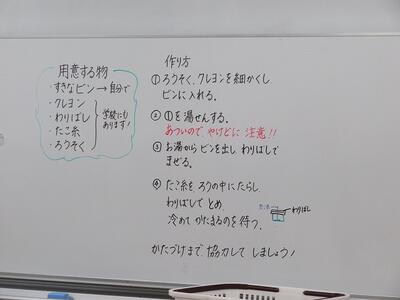 用意する物
・すきなビン→自分で
・クレヨン
・わりばし
・たこ糸
・ろうそく
学校にも
あります!
作り方
①ろうそく、クレヨンを細かくし
ビンに入れる。
②①を湯せんする。
あついので やけどに 注意!!
③お湯からビンを出し わりばしで
まぜる。
④たこ糸を ろうの中にたらし、
わりばしで とめ、
冷めて かたまるのを 待つ。
わりばし
かたづけまで、協力して しましょう!